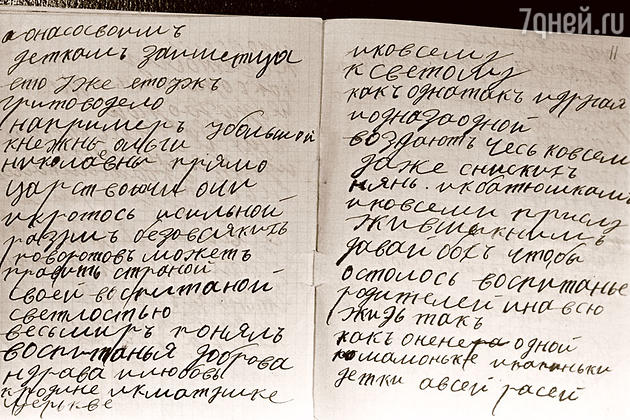 7дней.ru
а онасосвоимъ
деткамъ заместица
ето уже етожъ
притоводело
например убольшой
княжны ольги
николавны прямо
царствоючи оии
икротось исильной
разумъ бездовсякихъ
поворотовъ можетъ
править страной
своей воспитаной
светлостью
весьмиръ понялъ
воспитанья здорова
нрава илюбовь
кродине икматушке
церькве
11
иковсему
ксветому
какъ однатакъ идругая
иодназаодной
воздаютъ чесь ковсем
даже снискихъ
нянь. икбатюшкамъ
иковсеми прислу
жившинимъ
давай бохъ чтобы
остолось воспитанье
родителей инавсю
жизь такъ
какъ оне одной
комамоньке ипапиньки
детки авсей расей